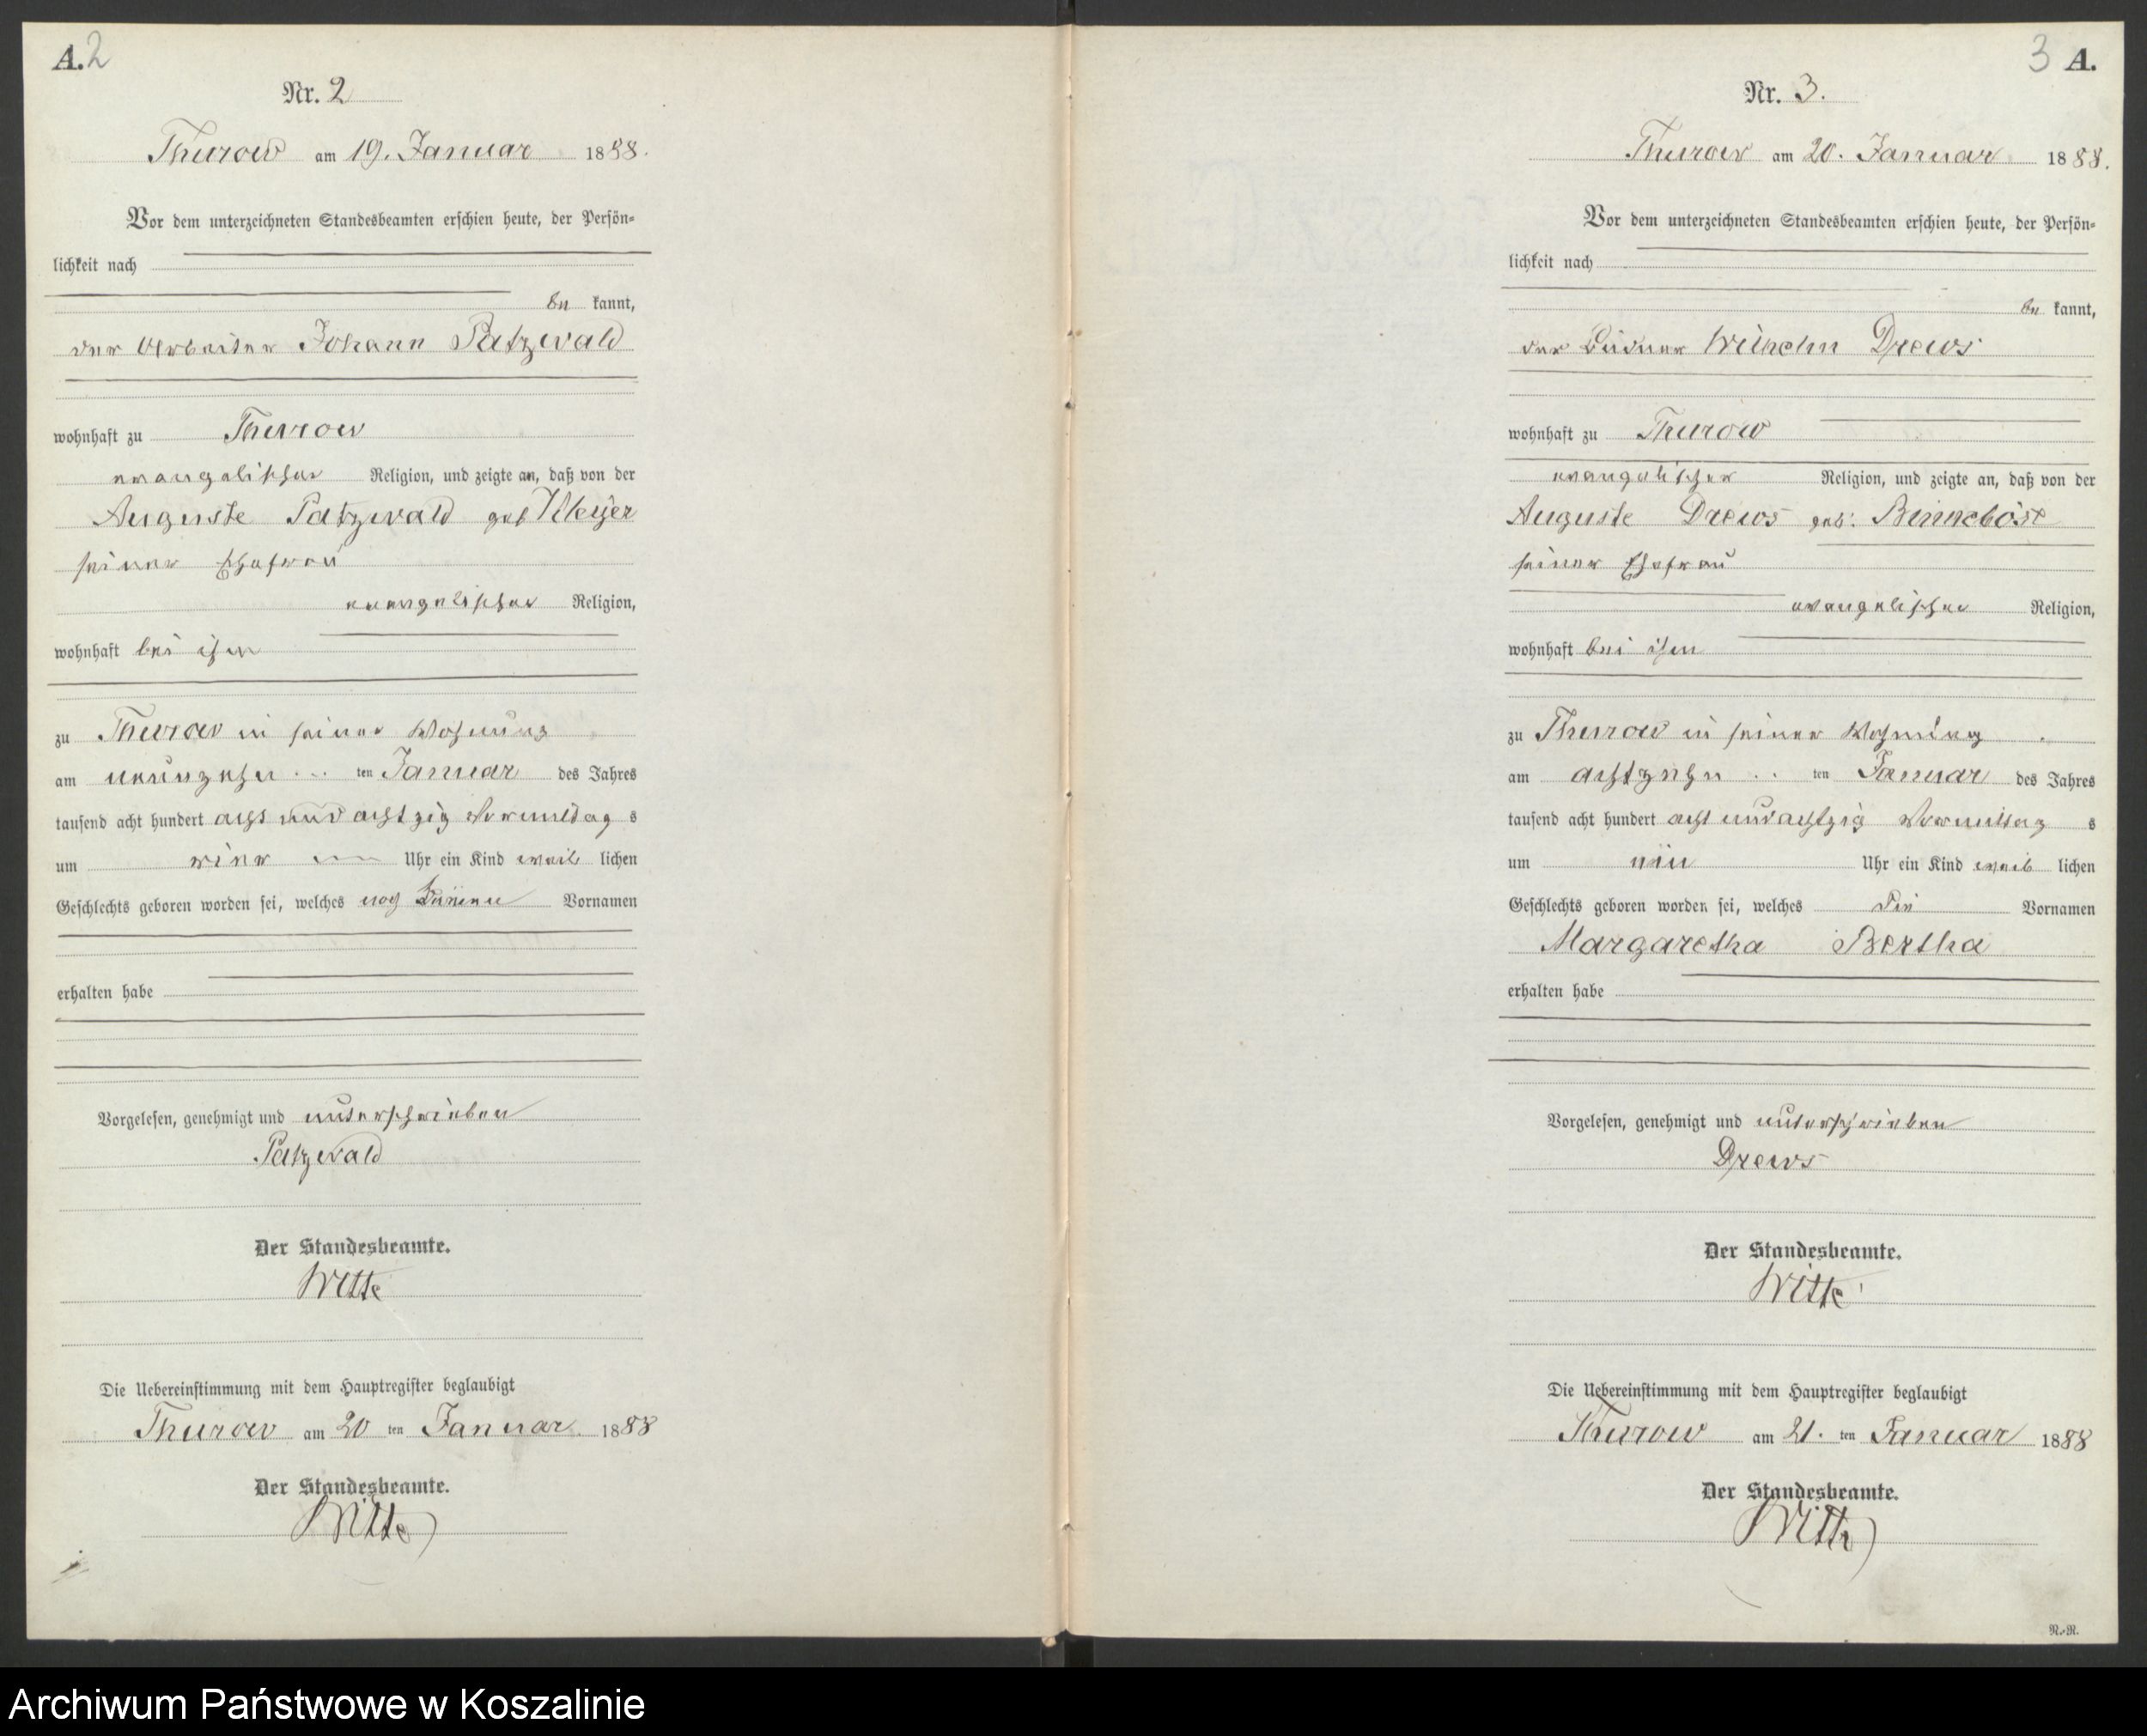 A. 2
Nr. 2
Thurow am 19. Januar 1888.
Vor dem unterzeichneten Standesbeamten erschien heute, der Persön=
lichkeit nach
be kannt,
der Arbeiter Johann Patzwald
wohnhaft zu Thurow
evangelischer Religion, und zeigte an, daß von der
Auguste Patzwald geb Meyer
seiner Ehefrau
evangelischer Religion,
wohnhaft bei ihm
zu Thurow in seiner Wohnung
am neunzehn ten Januar des Jahres
tausend acht hundert acht und achtzig Vormittag s
um vier Uhr ein Kind weib lichen
Geschlechts geboren worden sei, welches noch keinen Vornamen
erhalten habe
Vorgelesen, genehmigt und unterschrieben
Patzwald
Der Standesbeamte.
Witte
Die Uebereinstimmung mit dem Hauptregister beglaubigt
Thurow am 20 ten Januar 1888
Der Standesbeamte.
Witte
3 A.
Nr. 3.
Thurow am 20. Januar 1888.
Vor dem unterzeichneten Standesbeamten erschien heute, der Persön=
lichkeit nach
be kannt,
der Büdner Wilhelm Drews
wohnhaft zu Thurow
evangelischer Religion, und zeigte an, daß von der
Auguste Drews geb. Binneböse
seiner Ehefrau
evangelischer Religion,
wohnhaft bei ihm
zu Thurow in seiner Wohnung
am achtzehn ten Januar des Jahres
tausend acht hundert acht und achtzig Vormittag s
um ein Uhr ein Kind weib lichen
Geschlechts geboren worden sei, welches die Vornamen
Margaretha Bertha
erhalten habe
Vorgelesen, genehmigt und unterschrieben
Drews
Der Standesbeamte.
Witte
Die Uebereinstimmung mit dem Hauptregister beglaubigt
Thurow am 21. ten Januar 1888
Der Standesbeamte.
Witte
N.-N.
Archiwum Państwowe w Koszalinie